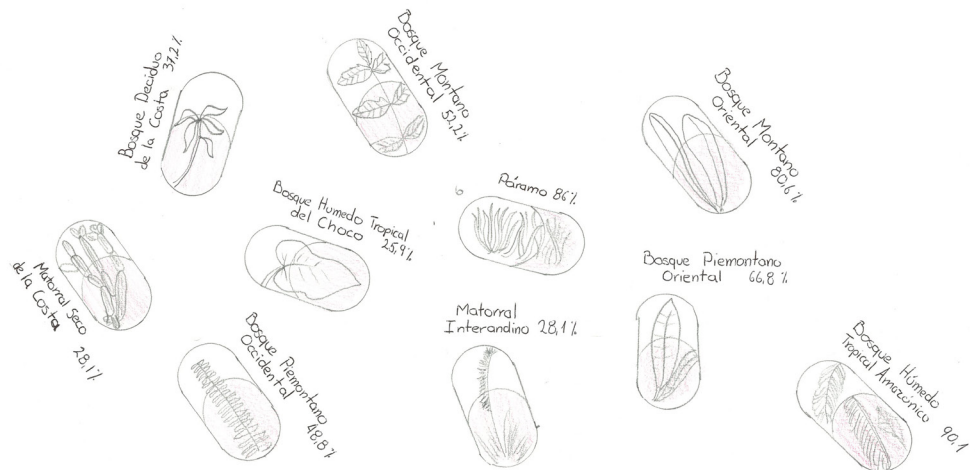 Bosque Deciduo
de la Costa 37,2%
Bosque Montano
Occidental 52,2%
Bosque Montano
Oriental
80,6%
Páramo 86%
Bosque Humedo Tropical
del Choco 25,9%
Matorral Seco
de la Costa
28,1%
Bosque Piemontano
Oriental 66,8%
Matorral
Interandino 28,1%
Bosque Piemontano
Occidental
48,8%
Bosque Húmedo
Tropical Amazónico 90,1